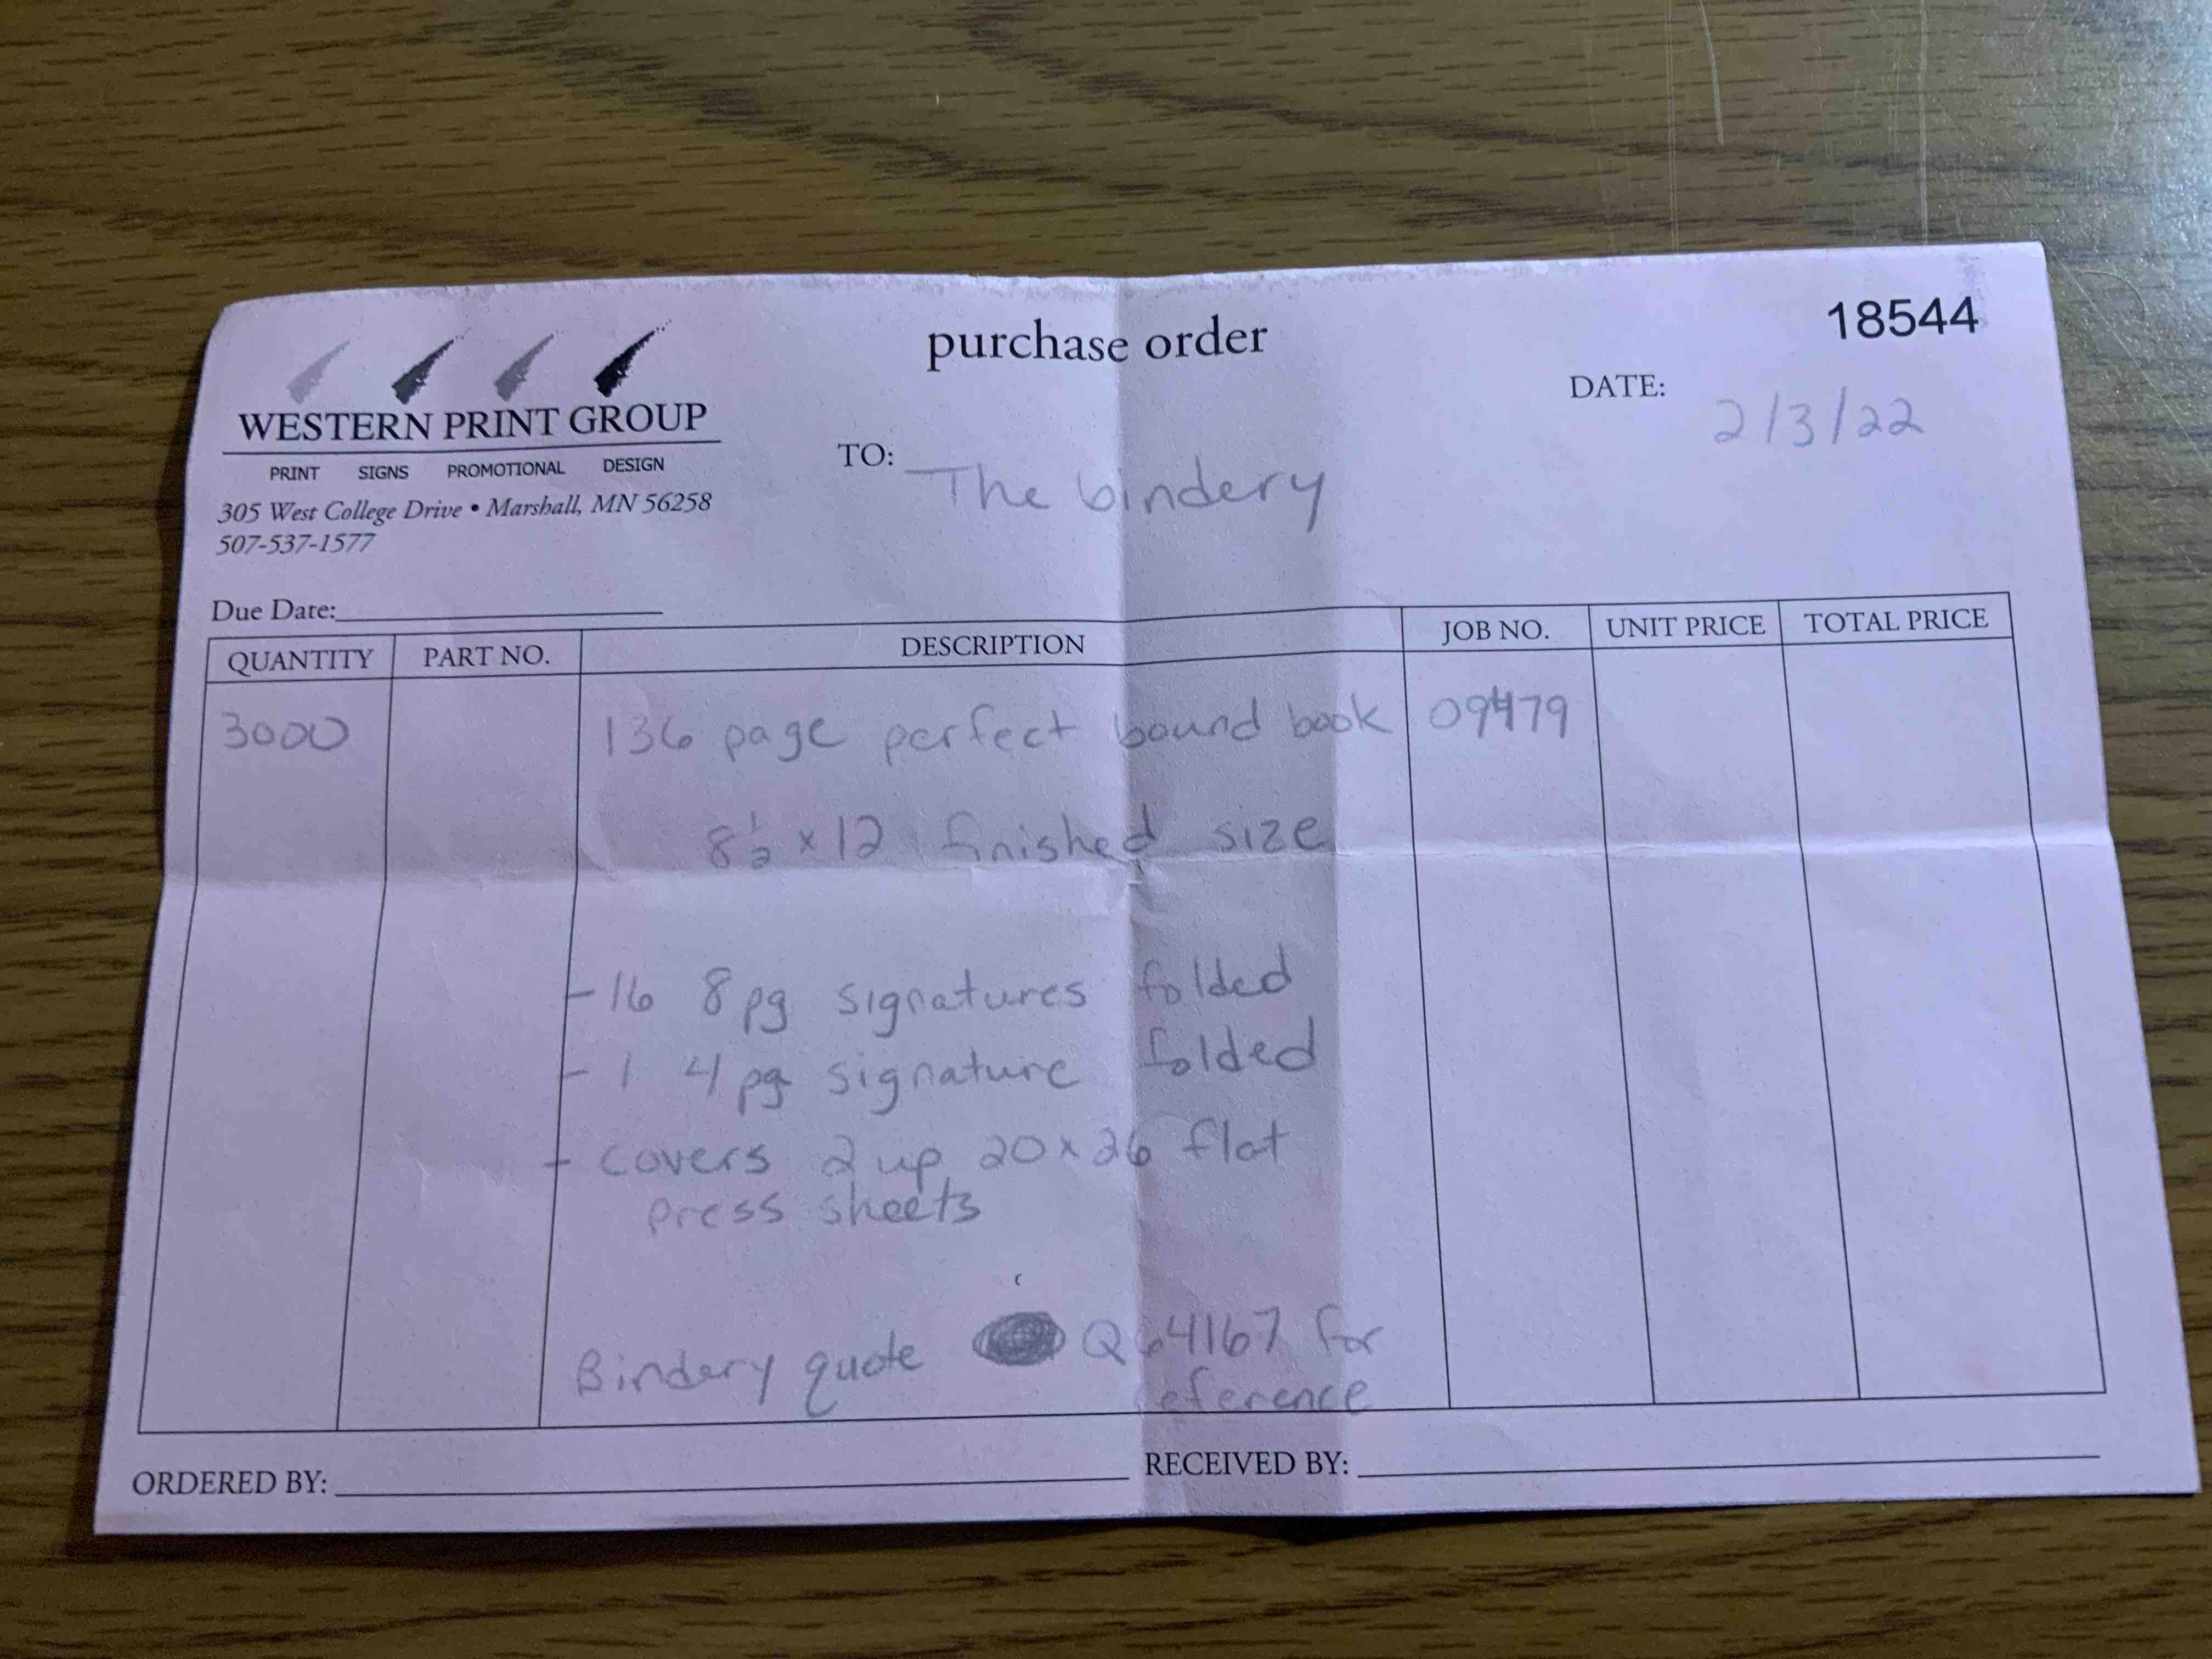 purchase order
18544
WESTERN PRINT GROUP
PRINT SIGNS PROMOTIONAL DESIGN
305 West College Drive • Marshall, MN 56258
507-537-1577
TO: The bindery
DATE: 2/3/22
Due Date:
QUANTITY PART NO. DESCRIPTION JOB NO. UNIT PRICE TOTAL PRICE
3000 136 page perfect bound book 09479
8 1/2 x 12 finished size
- 16 8 pg signatures folded
- 1 4 pg signature folded
- covers 2 up 20 x 26 flat
press sheets
Bindery quote Q64167 for
reference
ORDERED BY: RECEIVED BY: